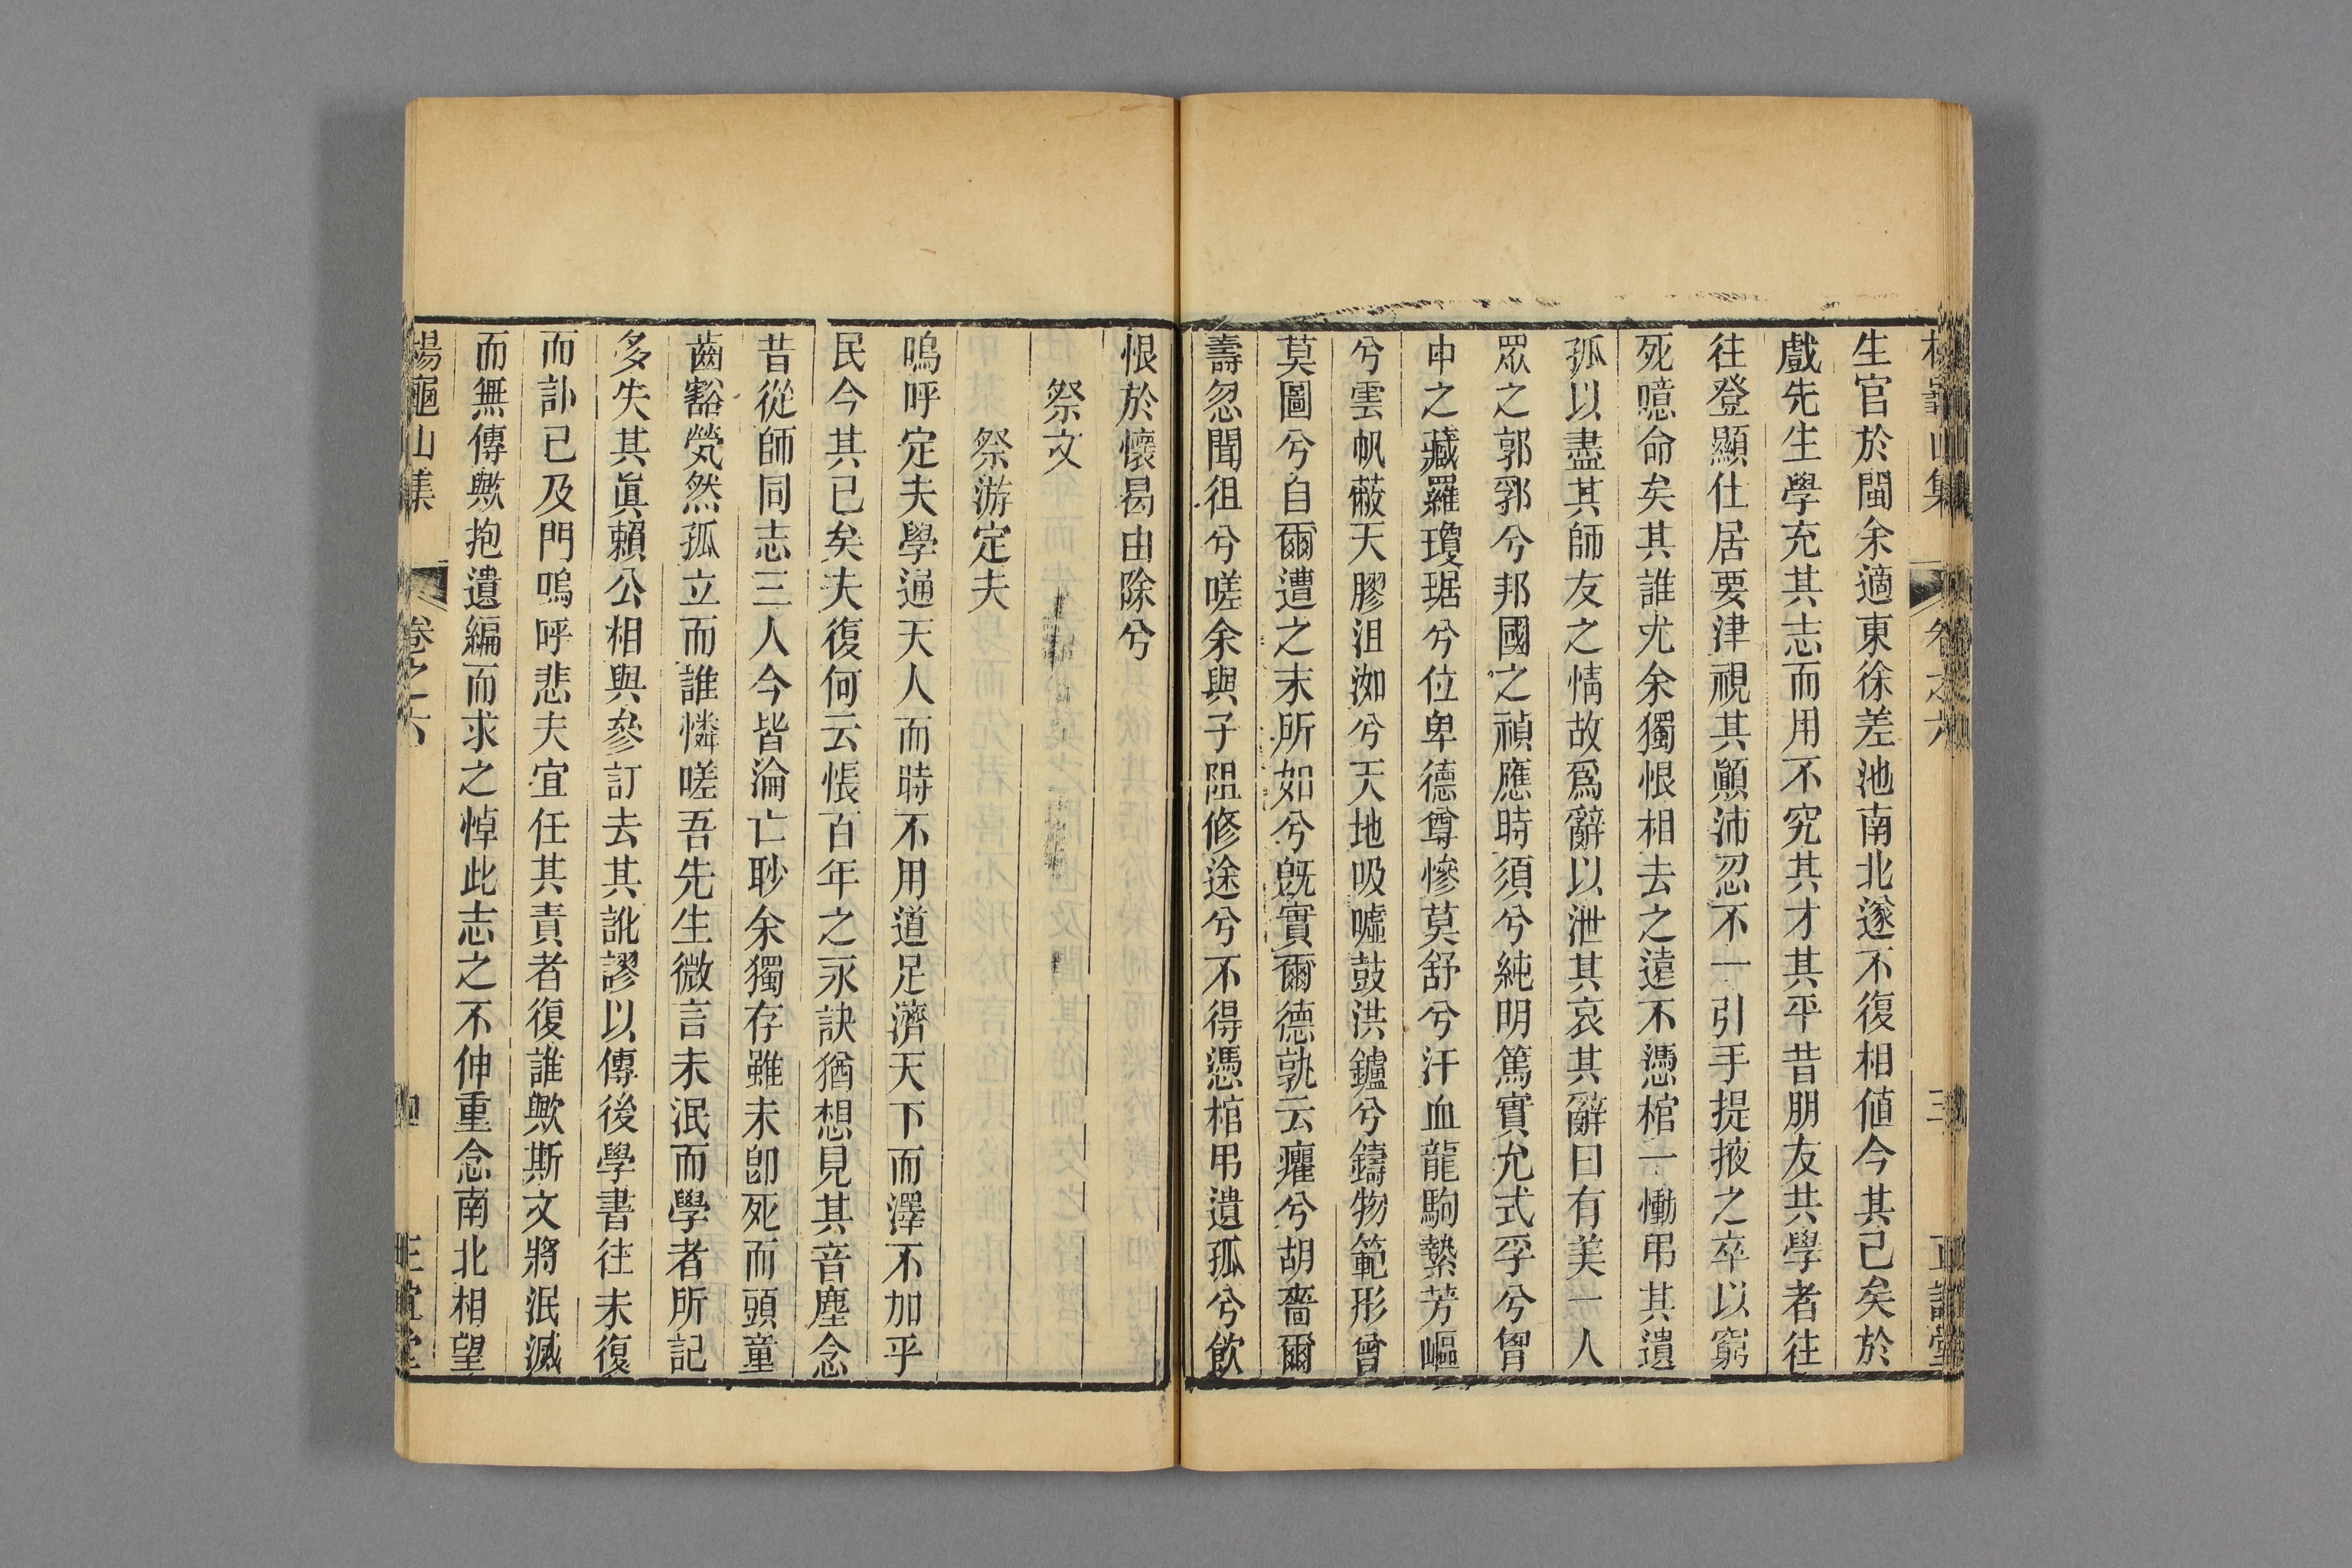 生官於閩余適東徐差池南北遂不復相値今其已矣於
戲先生學充其志而用不究其才其平昔朋友共學者往
往登顯仕居要津視其顚沛忍不一引手提掖之卒以窮
死噫命矣其誰尤余獨恨相去之遠不憑棺一慟弔其遺
孤以盡其師友之情故爲辭以泄其哀其辭曰有美一人
眾之郛郭兮邦國之禎應時須兮純明篤實允式孚兮胷
中之藏羅瓊琚兮位卑德尊慘莫舒兮汗血龍駒縶芳嶇
兮雲帆蔽天膠沮洳兮天地吸噓鼓洪鑪兮鑄物範形曾
莫圖兮自爾遭之末所如兮旣實爾德孰云癯兮胡嗇爾
壽忽聞徂兮嗟余與子阻修途兮不得憑棺弔遺孤兮飮
恨於懷曷由除兮
祭文
祭游定夫
嗚呼定夫學通天人而時不用道足濟天下而澤不加乎
民今其已矣夫復何云悵百年之永訣猶想見其音塵念
昔從師同志三人今皆淪亡眇余獨存雖未卽死而頭童
齒豁煢然孤立而誰憐嗟吾先生微言未泯而學者所記
多失其眞賴公相與參訂去其訛謬以傳後學書往未復
而訃已及門嗚呼悲夫宜任其責者復誰歟斯文將泯滅
而無傳歟抱遺編而求之悼此志之不伸重念南北相望
楊龜山集 卷之六